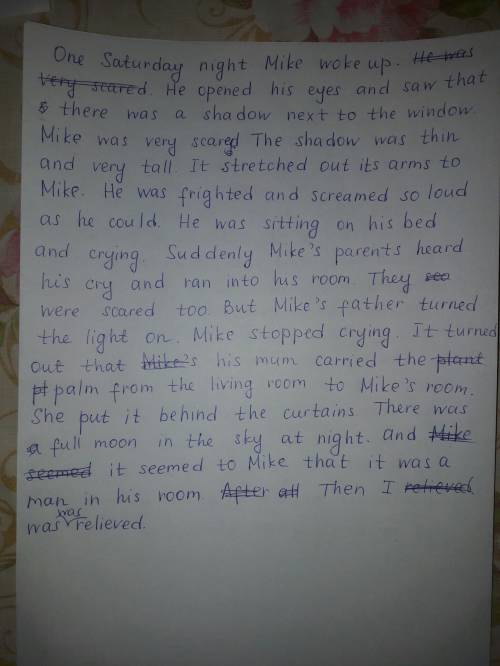 One Saturday night Mike woke up. He was
very scared. He opened his eyes and saw that
there was a shadow next to the window.
Mike was very scared The shadow was thin
and very tall. It stretched out its arms to
Mike. He was frighted and screamed so loud
as he could. He was sitting on his bed
and crying. Suddenly Mike's parents heard
his cry and ran into his room. They see
were scared too. But Mike's father turned
the light on. Mike stopped crying. It turned
out that Mike's his mum carried the plant
pt palm from the living room to Mike's room.
She put it behind the curtains. There was
a full moon in the sky at night. and Mike
seemed it seemed to Mike that it was a
man in his room. After all Then I relieved
was was relieved.